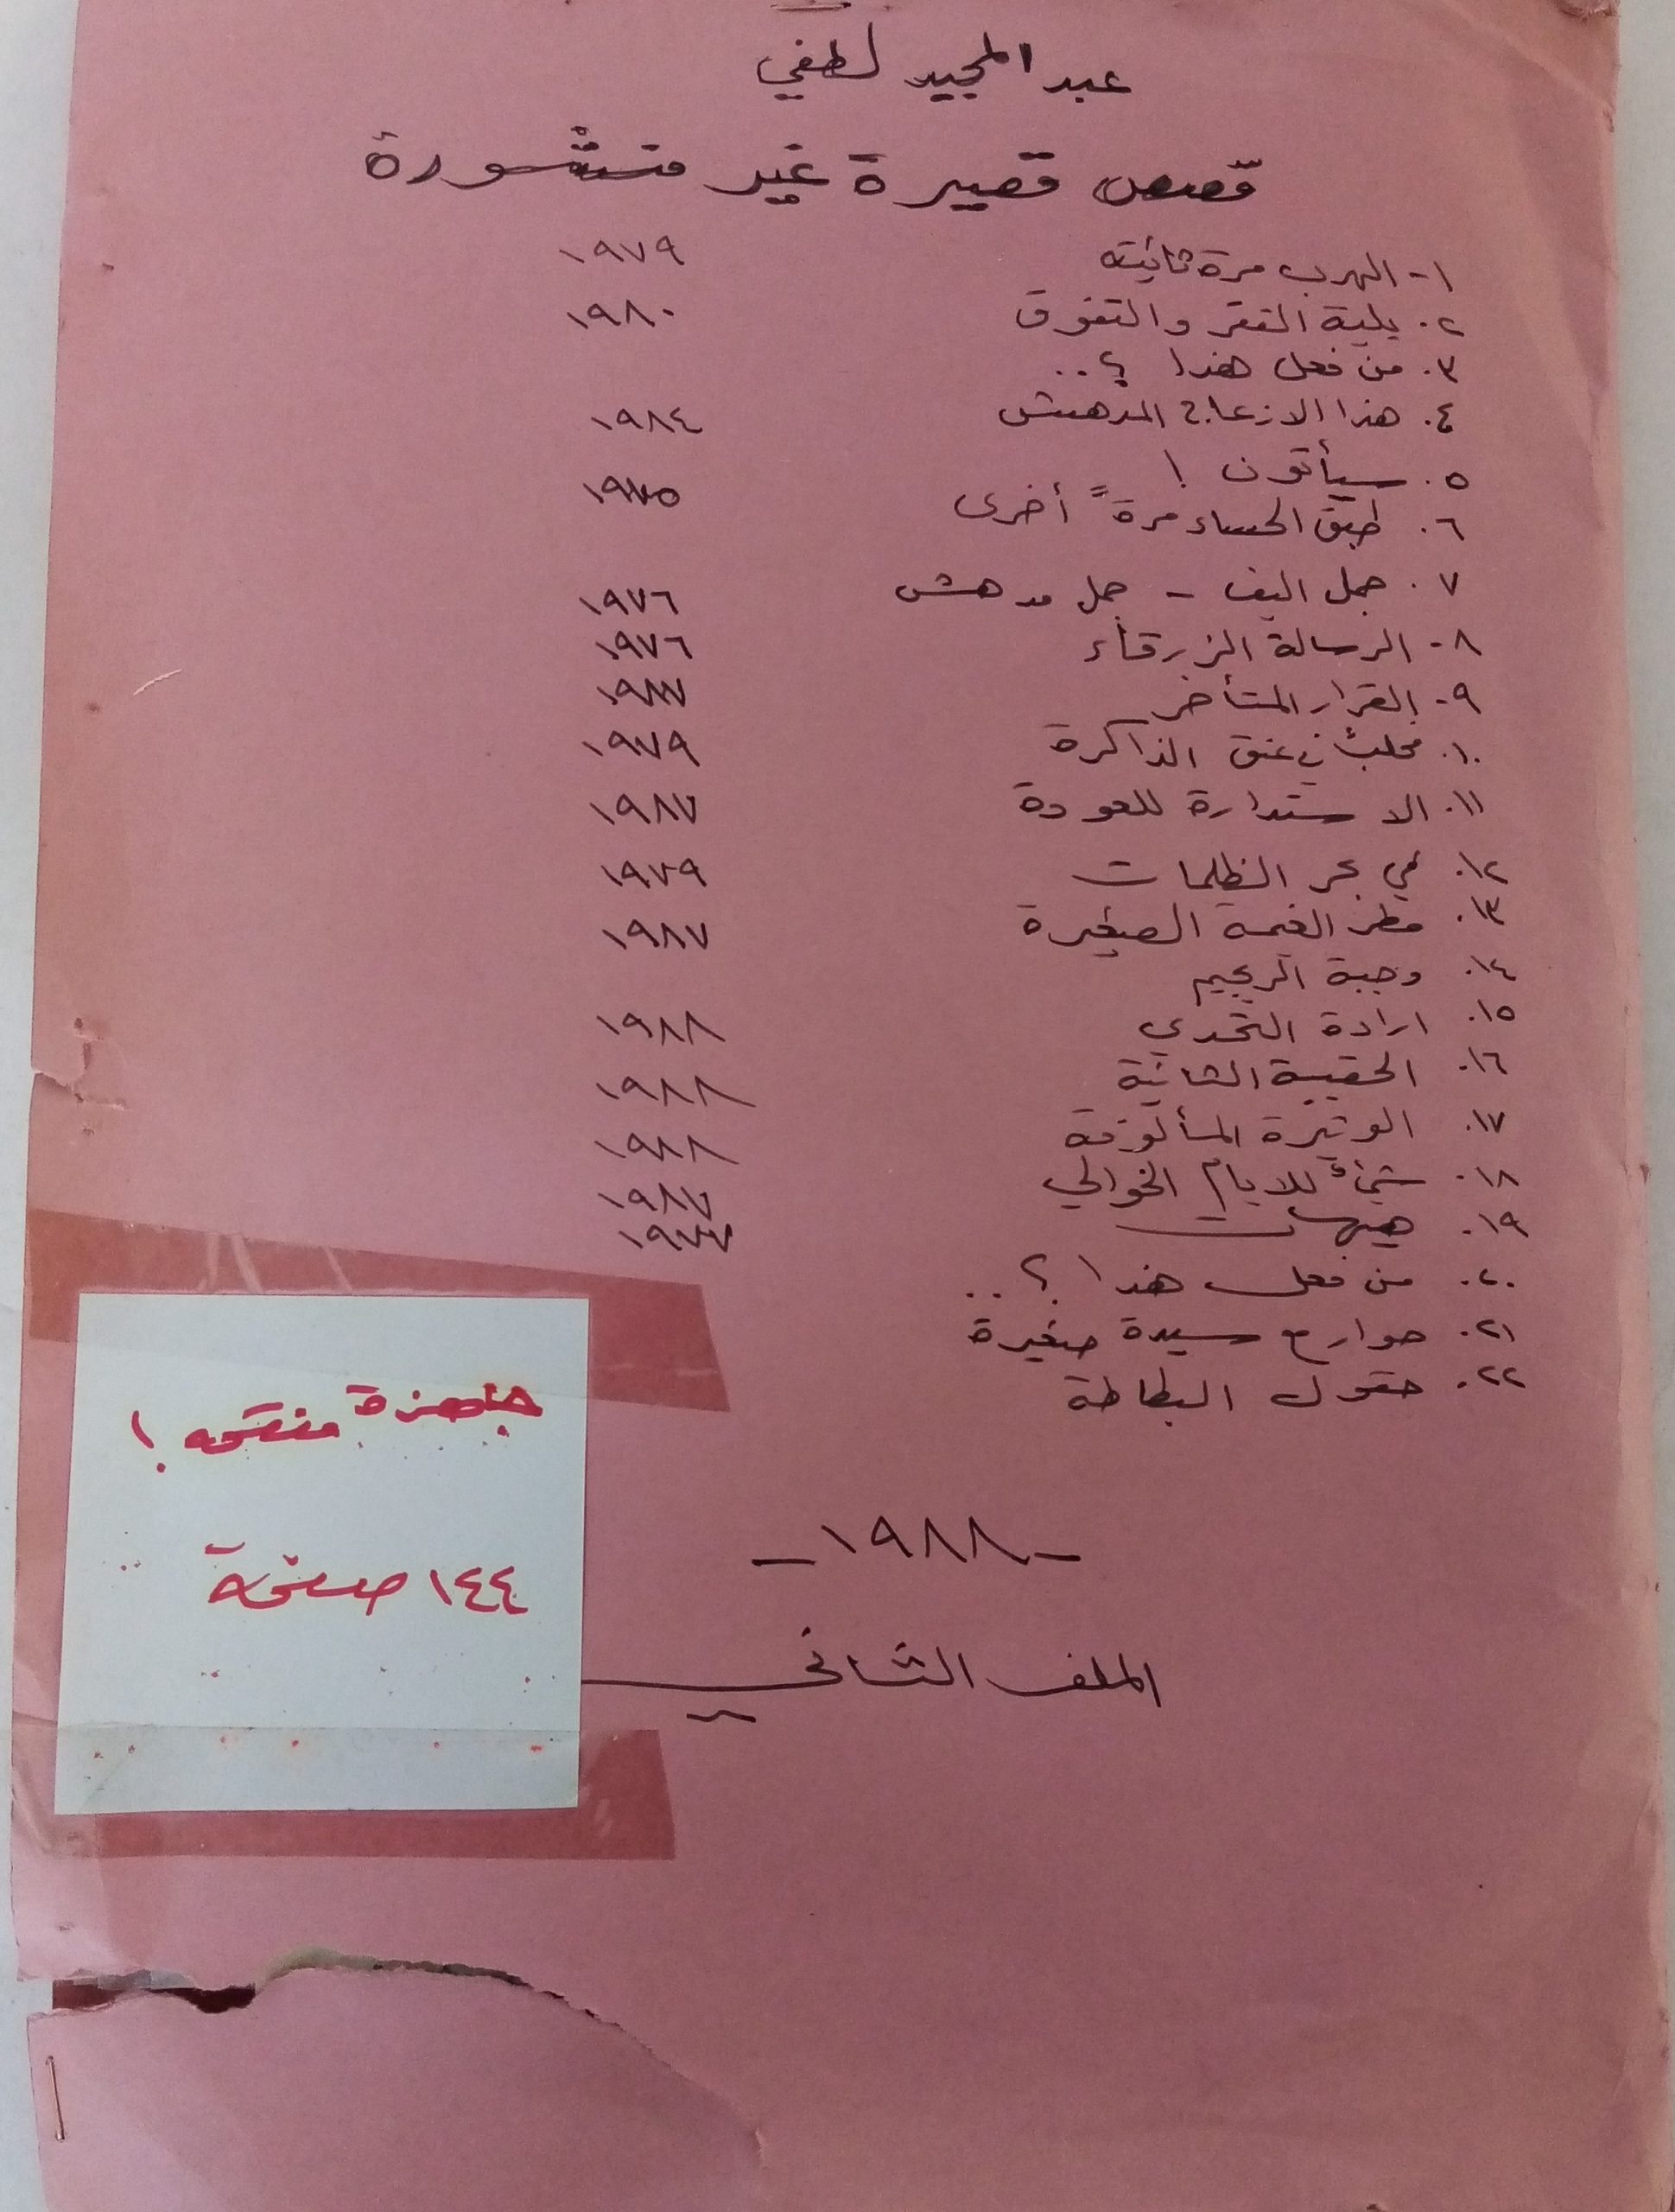 عبد المجيد لطفي
قصص قصيرة غير منشورة
١- الهرب مرة ثانية ١٩٧٩
٢. بلية الفقر والتفوق ١٩٨٠
٣. من فعل هذا ؟..
٤. هذا الازعاج المدهش ١٩٨٤
٥. سيأتون !
٦. طبق الحساء مرةً أخرى ١٩٧٥
٧. جمل اليف - جمل مدهش ١٩٧٦
٨- الرسالة الزرقاء ١٩٧٦
٩- القرار المتأخر ١٩٨٧
١٠. مخلب في عنق الذاكرة ١٩٧٩
١١. الاستدارة للعودة ١٩٨٧
١٢. في بحر الظلمات ١٩٧٩
١٣. مطر الغيمة الصغيرة ١٩٨٧
١٤. وجبة الرجيم
١٥. ارادة التحدي ١٩٨٨
١٦. الحقيبة الثانية ١٩٨٨
١٧. الوتيرة المألوفة ١٩٨٨
١٨. شيءٌ للايام الخوالي ١٩٨٧
١٩. هيهات ١٩٧٧
٢٠. من فعل هذا ؟..
٢١. جوارح سيدة صغيرة
٢٢. حقول البطاطة
جاهزة منقحه !
١٤٤ صفحة
- ١٩٨٨ -
الملف الثاني